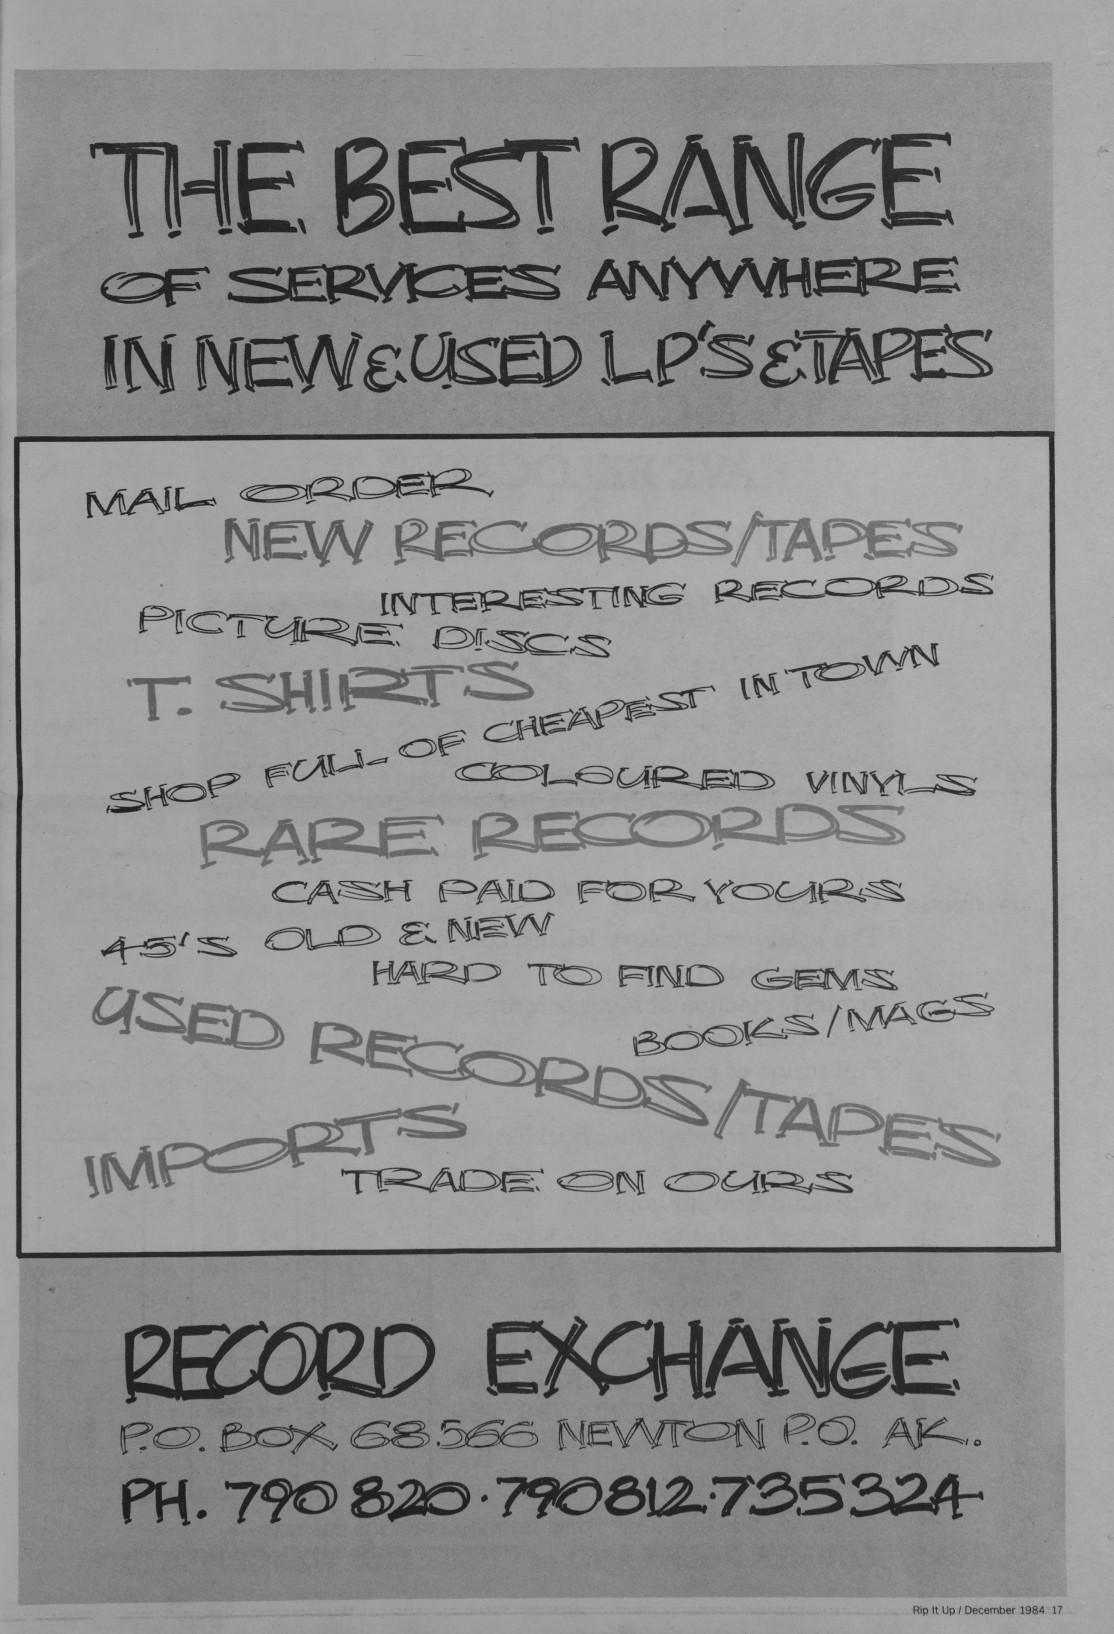 THE BEST RANGE
OF SERVICES ANYWHERE
IN NEW & USED LP'S & TAPES
MAIL ORDER
NEW RECORDS/TAPES
INTERESTING RECORDS
PICTURE DISCS
T. SHIRTS
SHOP FULL OF CHEAPEST IN TOWN
COLOURED VINYLS
RARE RECORDS
CASH PAID FOR YOURS
45'S OLD & NEW
HARD TO FIND GEMS
USED RECORDS/TAPES
BOOKS/MAGS
IMPORTS
TRADE ON OURS
RECORD EXCHANGE
P.O. BOX 68.566 NEWTON P.O. AK.
PH. 790 820 · 790812 · 735324
Rip It Up / December 1984 17